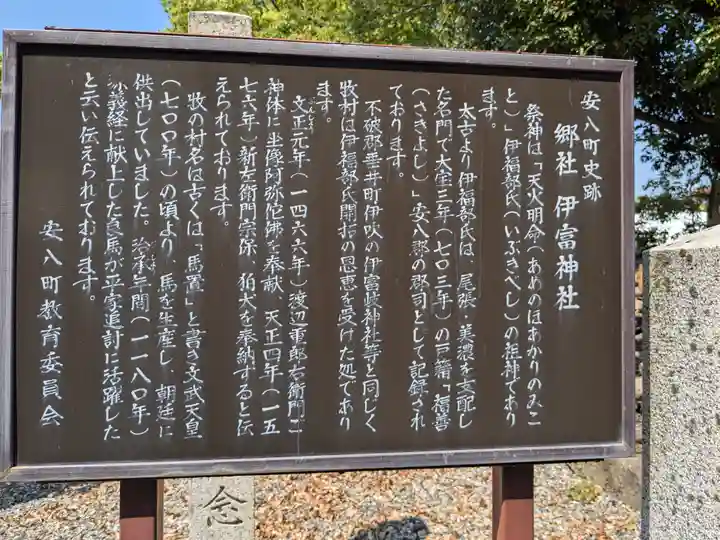 安八町史跡
郷社 伊富神社
祭神は「天火明命(あめのほあかりのみこ
と)」伊福部氏(いぶきべし)の祖神であり
ます。
太古より伊福部氏は、尾張・美濃を支配し
た名門で大宝三年(七〇三年)の戸籍「福善
(さきよし)」安八郡の郡司として記録され
ております。
不破郡垂井町伊吹の伊富岐神社等と同じく
牧村は伊福部氏開拓の恩恵を受けた処であり
ます。
文正元年(一四六六年)渡辺重郎右衛門ご
ぶんしょう
神体に坐像阿弥陀佛を奉献、天正四年(一五
七六年)新左衛門宗保、狛犬を奉納すると伝
えられております。
牧の村名は古くは、「馬置」と書き文武天皇
(七〇〇年)の頃より、馬を生産し、朝廷に
供出していました。治承年間(一一八〇年)
源義経に献上した良馬が平家追討に活躍した
と云い伝えられております。
安八町教育委員会
念